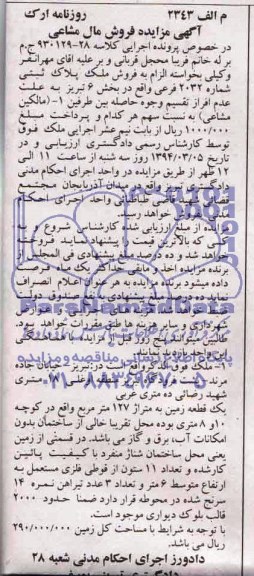 م الف ۲۳۴۳ روزنامه ارک
آگهی مزایده فروش مال مشاعی
در خصوص پرونده اجرایی کلاسه ۲۸-۹۳۰۱۲۹ ج.م
بر له خانم فریبا محجل قربانی و بر علیه آقای مهرانفر
وکیلی بخواسته الزام به فروش ملک پلاک ثبتی
شماره ۲۰۳۲ فرعی واقع در بخش ۶ تبریز به علت
عدم افراز تقسیم وجوه حاصله بین طرفین ۱- (مالکین
مشاعی) به نسبت سهم هر کدام و پرداخت مبلغ
۱/۰۰۰/۰۰۰ ریال از بابت نیم عشر اجرایی ملک فوق
توسط کارشناس رسمی دادگستری ارزیابی و در
تاریخ ۱۳۹۴/۰۳/۰۵ روز سه شنبه از ساعت ۱۱ الی
۱۲ ظهر از طریق مزایده در واحد اجرای احکام مدنی
دادگستری تبریز واقع در میدان آذربایجان مجتمع
قضایی شهید قاضی طباطبائی واحد اجرای احکام
خواهد رسید.
مزایده از مبلغ ارزیابی شده کارشناس شروع و به
کسی که بالاترین قیمت را پیشنهاد نماید فروخته
خواهد شد و ده درصد مبلغ پیشنهادی فی المجلس از
برنده مزایده اخذ و مابقی حداکثر یک ماه فرصت
داده میشود برنده مزایده به هر عنوان اعلام انصراف
نماید ده درصد مبلغ پیشنهادی به نفع صندوق دولت
شهرداری و سایر هزینه ها طبق مقررات خواهد بود.
طالبین میتوانند پنج روز قبل از مزایده با هماهنگی
۱- ملک فوق الذکر واقع است در: تبریز خیابان جاده
شهید رضائی ده متری غربی
یک قطعه زمین به متراژ ۱۲۷ متر مربع واقع در کوچه
۱۰ و ۸ متری بوده محل تقریبا خالی از ساختمان بدون
امکانات آب، برق و گاز می باشد. در قسمتی از زمین
یعنی محل ساختمان شناژ منفرد با کیفیت پائین
کارشده و تعداد ۱۱ ستون از قوطی فلزی مستعمل به
ارتفاع متوسط ۶ متر و تعداد ۳ عدد تیرآهن نمره ۱۴
سرنج شده در محوطه قرار دارد ضمنا حدود ۲۰۰۰
قالب بلوک دیواری موجود است.
با توجه به شرایط با مساحت کل زمین ۲۹۰/۰۰۰/۰۰۰
ریال می باشد.
دادورز اجرای احکام مدنی شعبه ۲۸